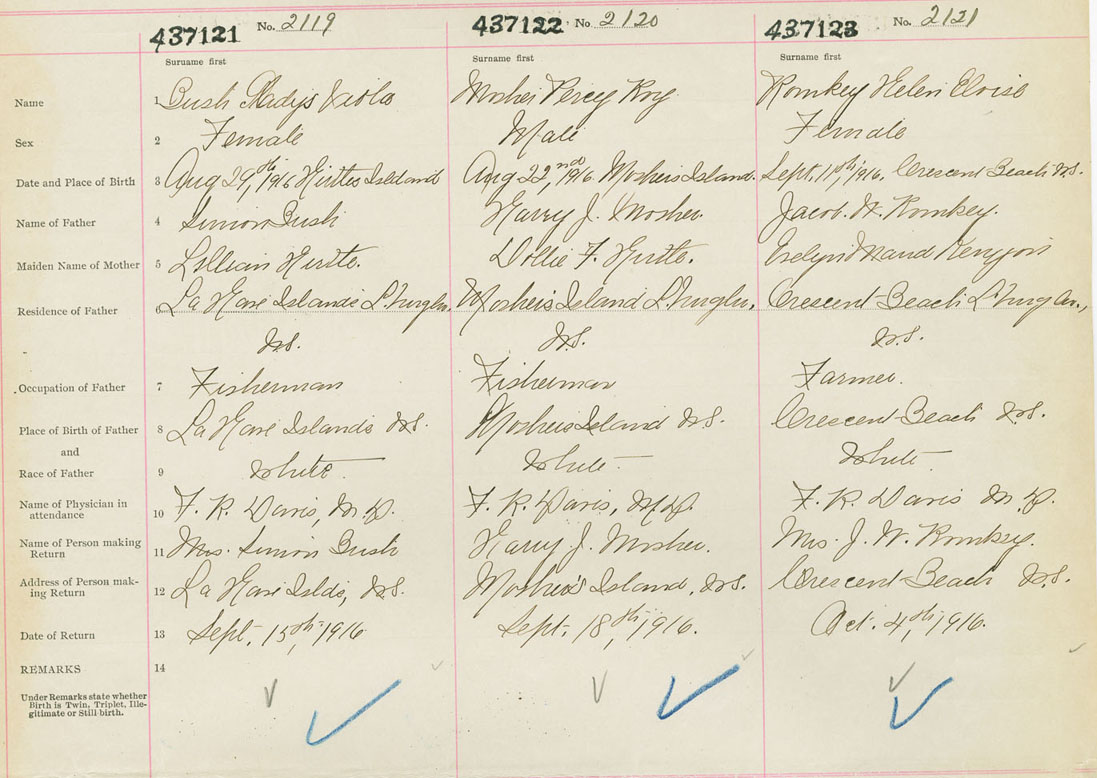 437121 No. 2119 437122 No 2120 437123 No. 2121
Surname first Surname first Surname first
Name 1 Bush Gladys Viola Mosher Percy Roy Romkey Helen Eloise
Sex 2 Female Male Female
Date and Place of Birth 3 Aug 29th, 1916 Hirtles Island Aug 22nd, 1916 Moshers Island Sept. 11th, 1916, Crescent Beach N.S.
Name of Father 4 Simion Bush Harry J. Mosher. Jacob. W. Romkey.
Maiden Name of Mother 5 Lillian Hirtle. Dollie F. Hirtle. Evelyn Maud Kenyon
Residence of Father 6 La Have Islands L'Burg Co., Moshers Island L'Burg Co., Crescent Beach L'Burg Co.,
N.S. N.S. N.S.
Occupation of Father 7 Fisherman Fisherman Farmer.
Place of Birth of Father 8 La Have Islands N.S. Moshers Island N.S. Crescent Beach N.S.
and
Race of Father 9 White White White
Name of Physician in
attendance 10 F. R. Davis, M.D. F. R. Davis, M.D. F. R. Davis M.D.
Name of Person making
Return 11 Mrs. Simion Bush Harry J. Mosher. Mrs. J. W. Romkey.
Address of Person mak-
ing Return 12 La Have Islds, N.S. Mosher's Island, N.S. Crescent Beach N.S.
Date of Return 13 Sept. 15th, 1916 Sept. 18th, 1916. Oct. 4th, 1916.
REMARKS 14
Under Remarks state whether
Birth is Twin, Triplet, Ille-
gitimate or Still-birth.